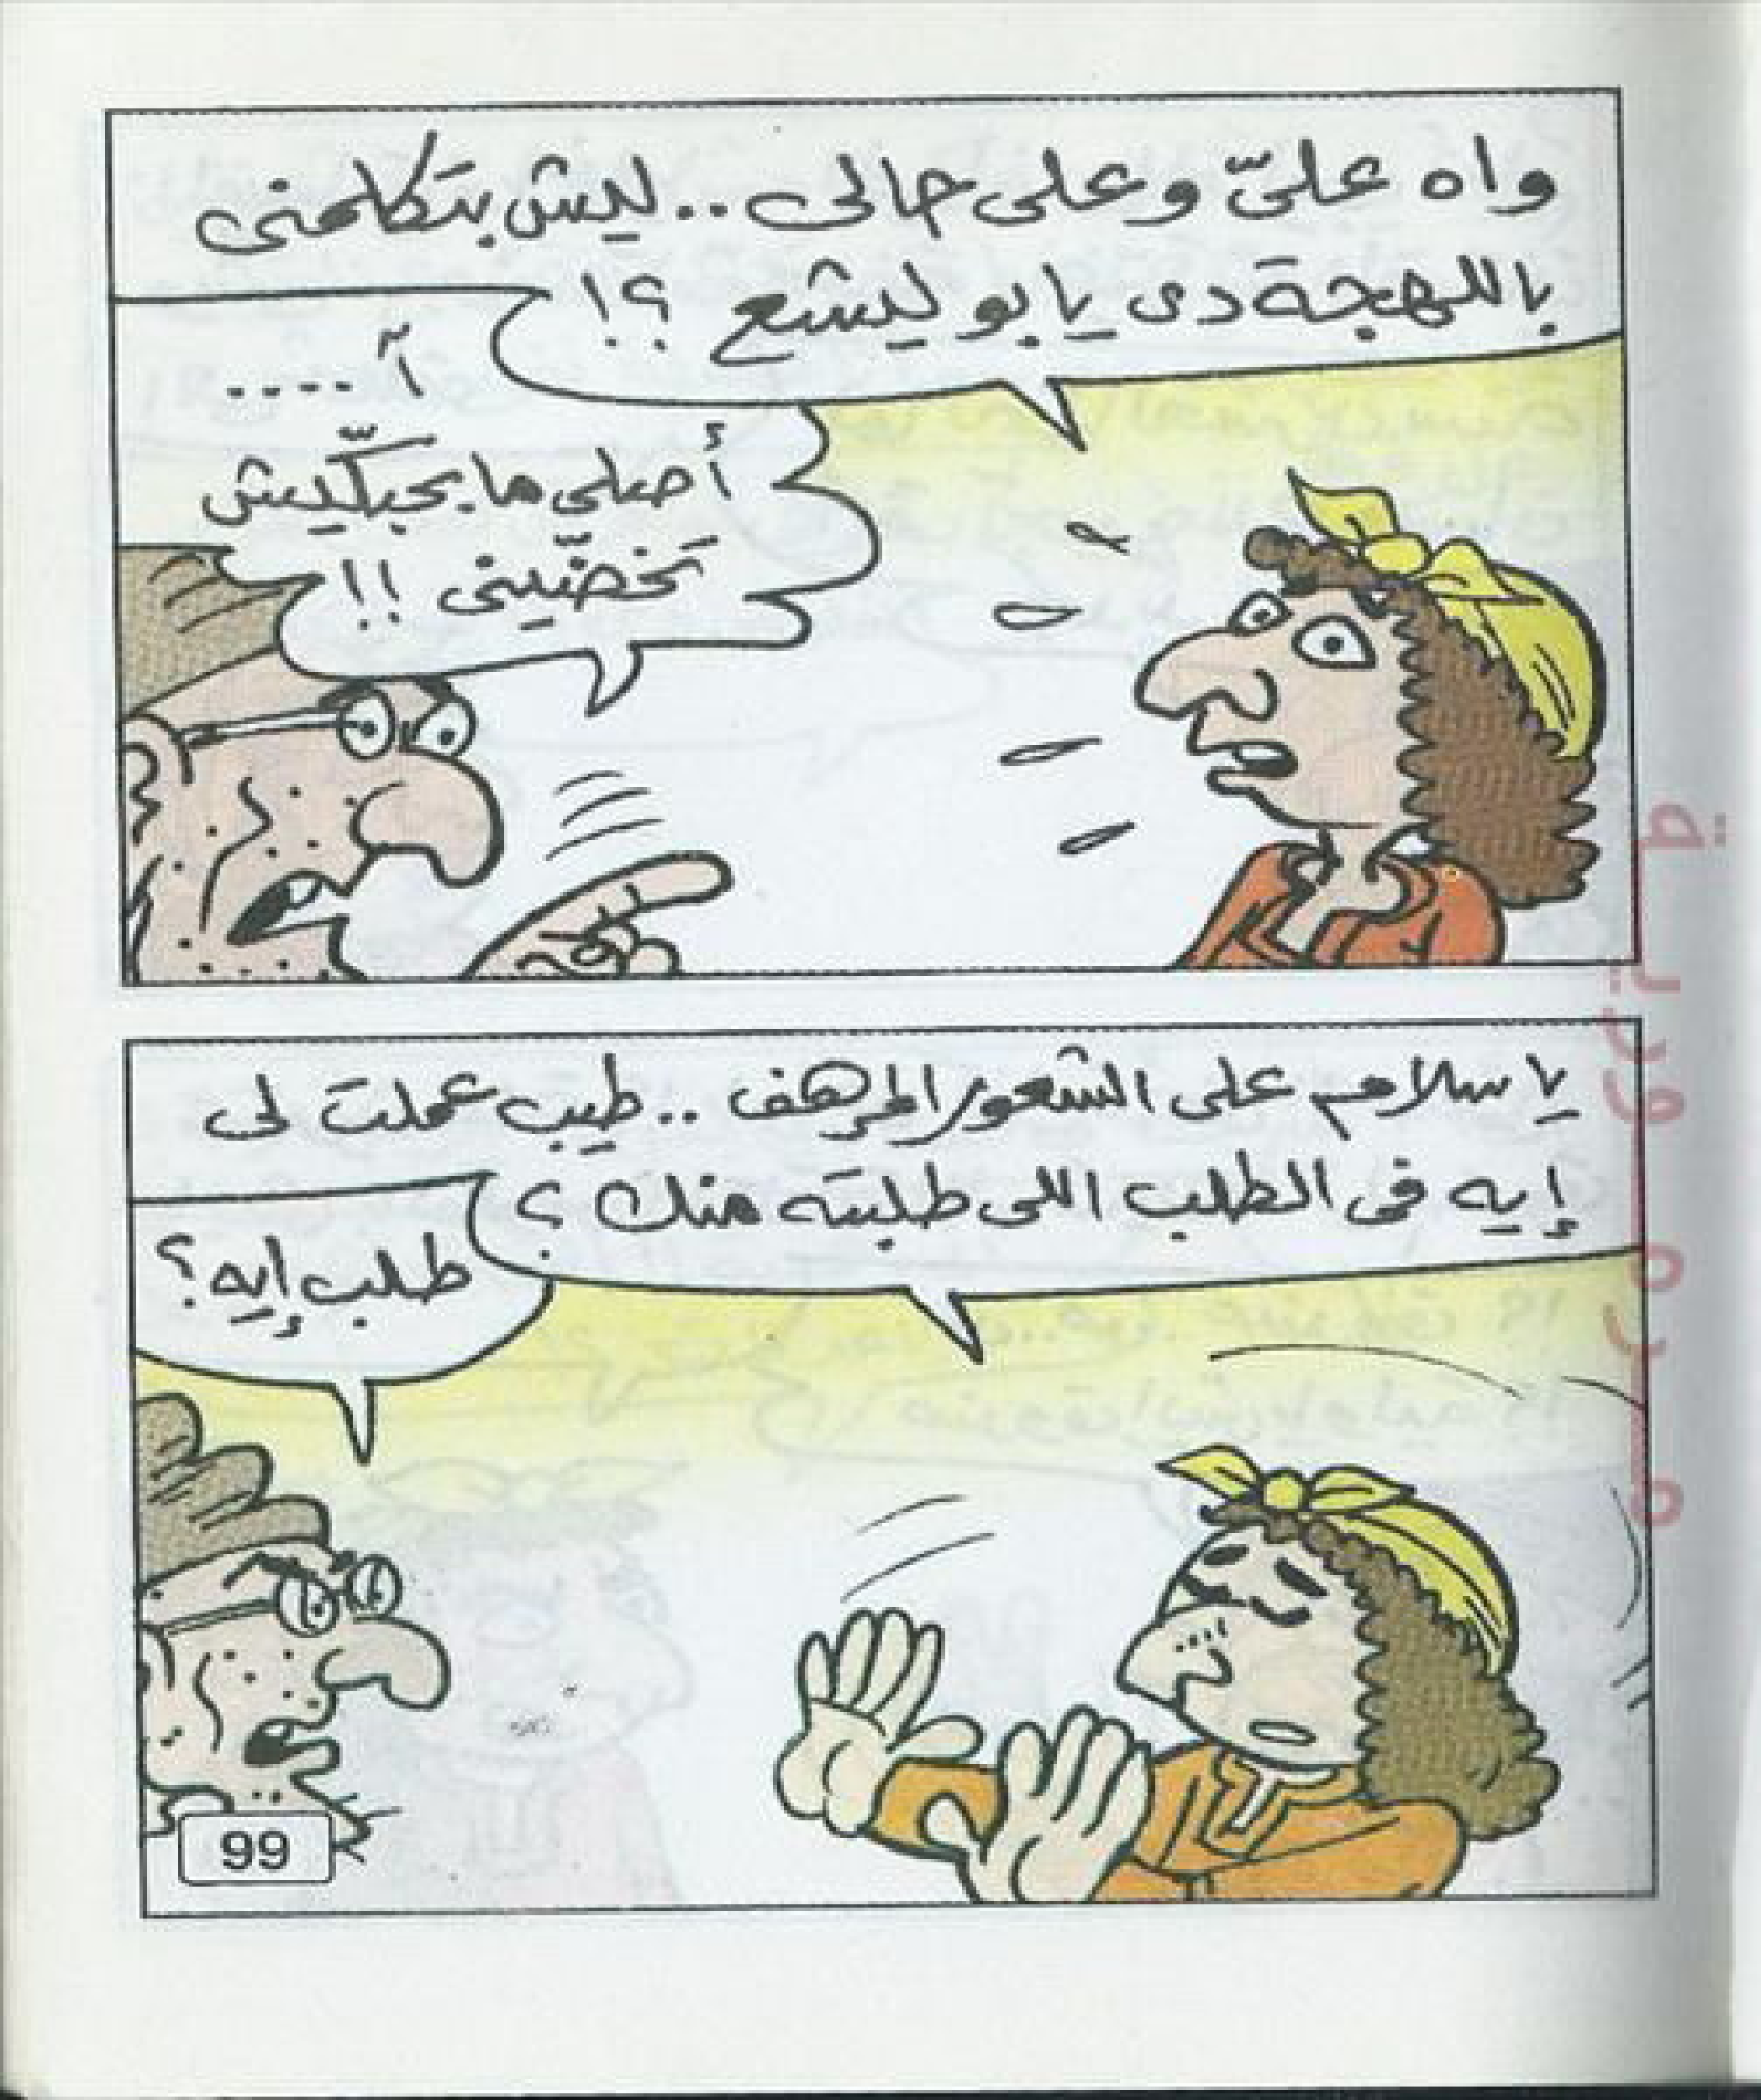 واه علىّ وعلى حالى.. ليش بتكلمنى
باللهجة دى يا بو ليشع ؟!
آ ....
أصلى ما بحبكّيش
تخضّينى !!
يا سلام على الشعور المرهف .. طيب عملت لى
إيه فى الطلب اللى طلبته منك ؟
طلب إيه ؟
99